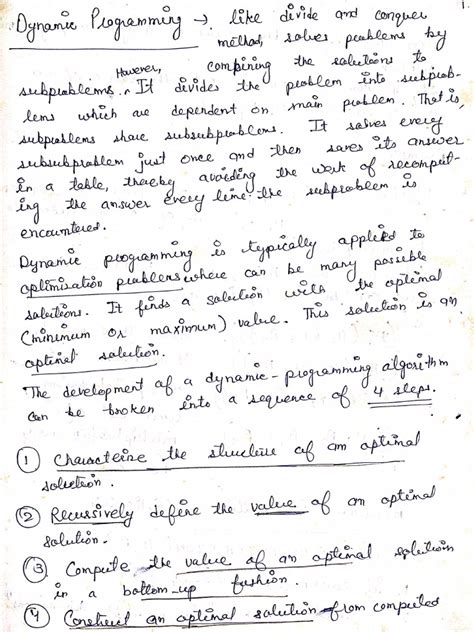 1.
Dynamic Programming → like divide and conquer
method, solves problems by
combining the solutions to
subproblems. However, It divides the problem into subprob-
lems which are dependent on main problem. That is,
subproblems share subsubproblems. It solves every
subsubproblem just once and then saves its answer
in a table, thereby avoiding the work of recomput-
ing the answer every time the subproblem is
encountered.
Dynamic programming is typically applied to
optimisation problems where can be many possible
solutions. It finds a solution with the optimal
(minimum or maximum) value. This solution is an
optimal solution.
The development of a dynamic-programming algorithm
can be broken into a sequence of 4 steps.
① Characterize the structure of an optimal
solution.
② Recursively define the value of an optimal
solution.
③ Compute the value of an optimal solution
in a bottom-up fashion.
④ Construct an optimal solution from computed